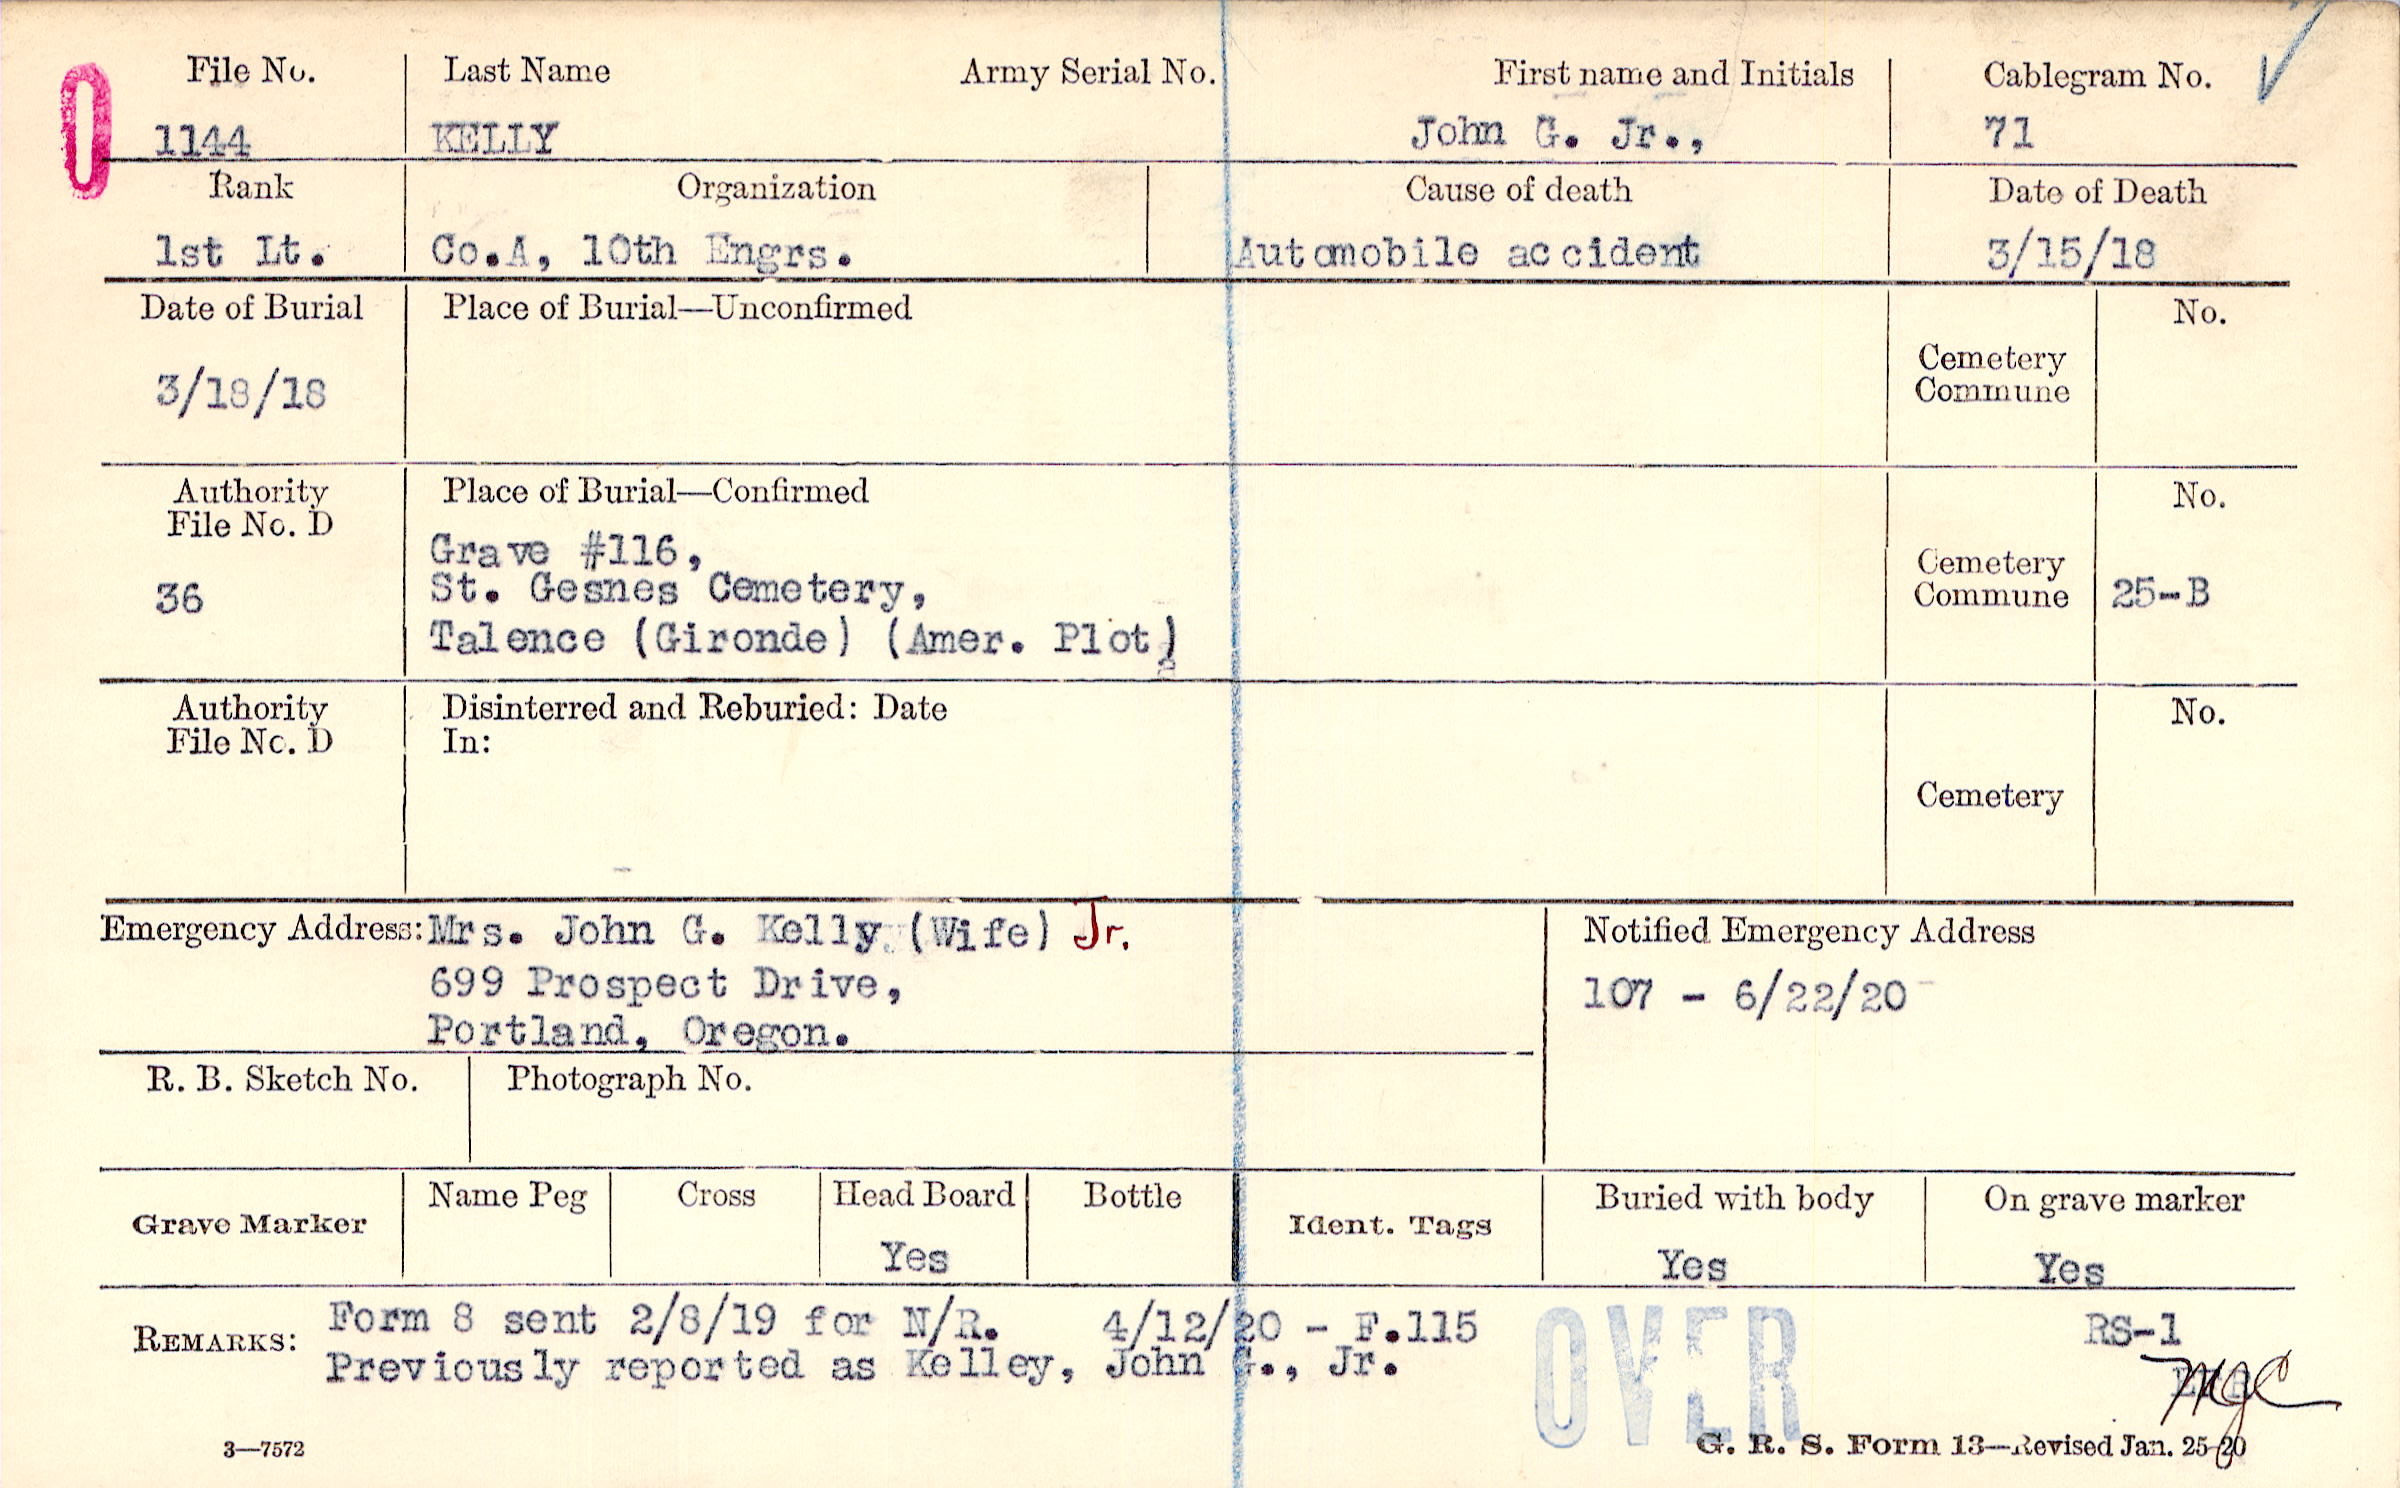 0
File No. Last Name Army Serial No. First name and Initials Cablegram No.
1144 KELLY John G. Jr., 71
Rank Organization Cause of death Date of Death
1st Lt. Co.A, 10th Engrs. Automobile accident 3/15/18
Date of Burial Place of Burial—Unconfirmed No.
3/18/18
Cemetery
Commune
Authority Place of Burial—Confirmed No.
File No. D
36
Grave #116,
St. Gesnes Cemetery,
Talence (Gironde) (Amer. Plot)
Cemetery
Commune 25-B
Authority Disinterred and Reburied: Date No.
File No. D In:
Cemetery
Emergency Address: Mrs. John G. Kelly (Wife) Jr.
699 Prospect Drive,
Portland, Oregon.
Notified Emergency Address
107 - 6/22/20
R. B. Sketch No. Photograph No.
Grave Marker Name Peg Cross Head Board Bottle Ident. Tags Buried with body On grave marker
Yes Yes Yes
REMARKS: Form 8 sent 2/8/19 for N/R. 4/12/20 - F.115 RS-1
Previously reported as Kelley, John G., Jr.
OVER
3—7572 G. R. S. Form 13—Revised Jan. 25-20